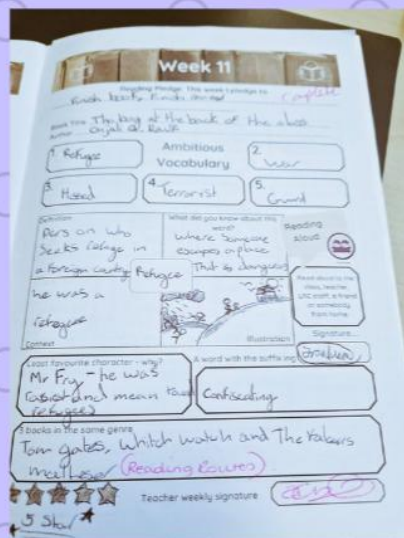 Week 11
Reading Pledge: This week I pledge to
Finish book
Book Title The boy at the back of the class
Author Onjali Q. Rauf
Ambitious
Vocabulary
1. Refugee
2. War
3. Hissed
4. Terrorist
5.
Definition
Person who
Seeks refuge in
a foreign country
What did you know about this
word?
where Someone
escapes a place
That is dangerous
Refugee
he was a
refugee
Context
Illustration
Reading
aloud
Read aloud to the
class, teacher,
LRC staff, a friend
or somebody
from home.
Signature...
Least favourite character - why?
Mr Fry - he was
racist and mean
refugees
A word with the suffix ing
Confiscating
3 books in the same genre
Tom gates, Whitch watch and The
(Reading Routes)
Teacher weekly signature
5 Star